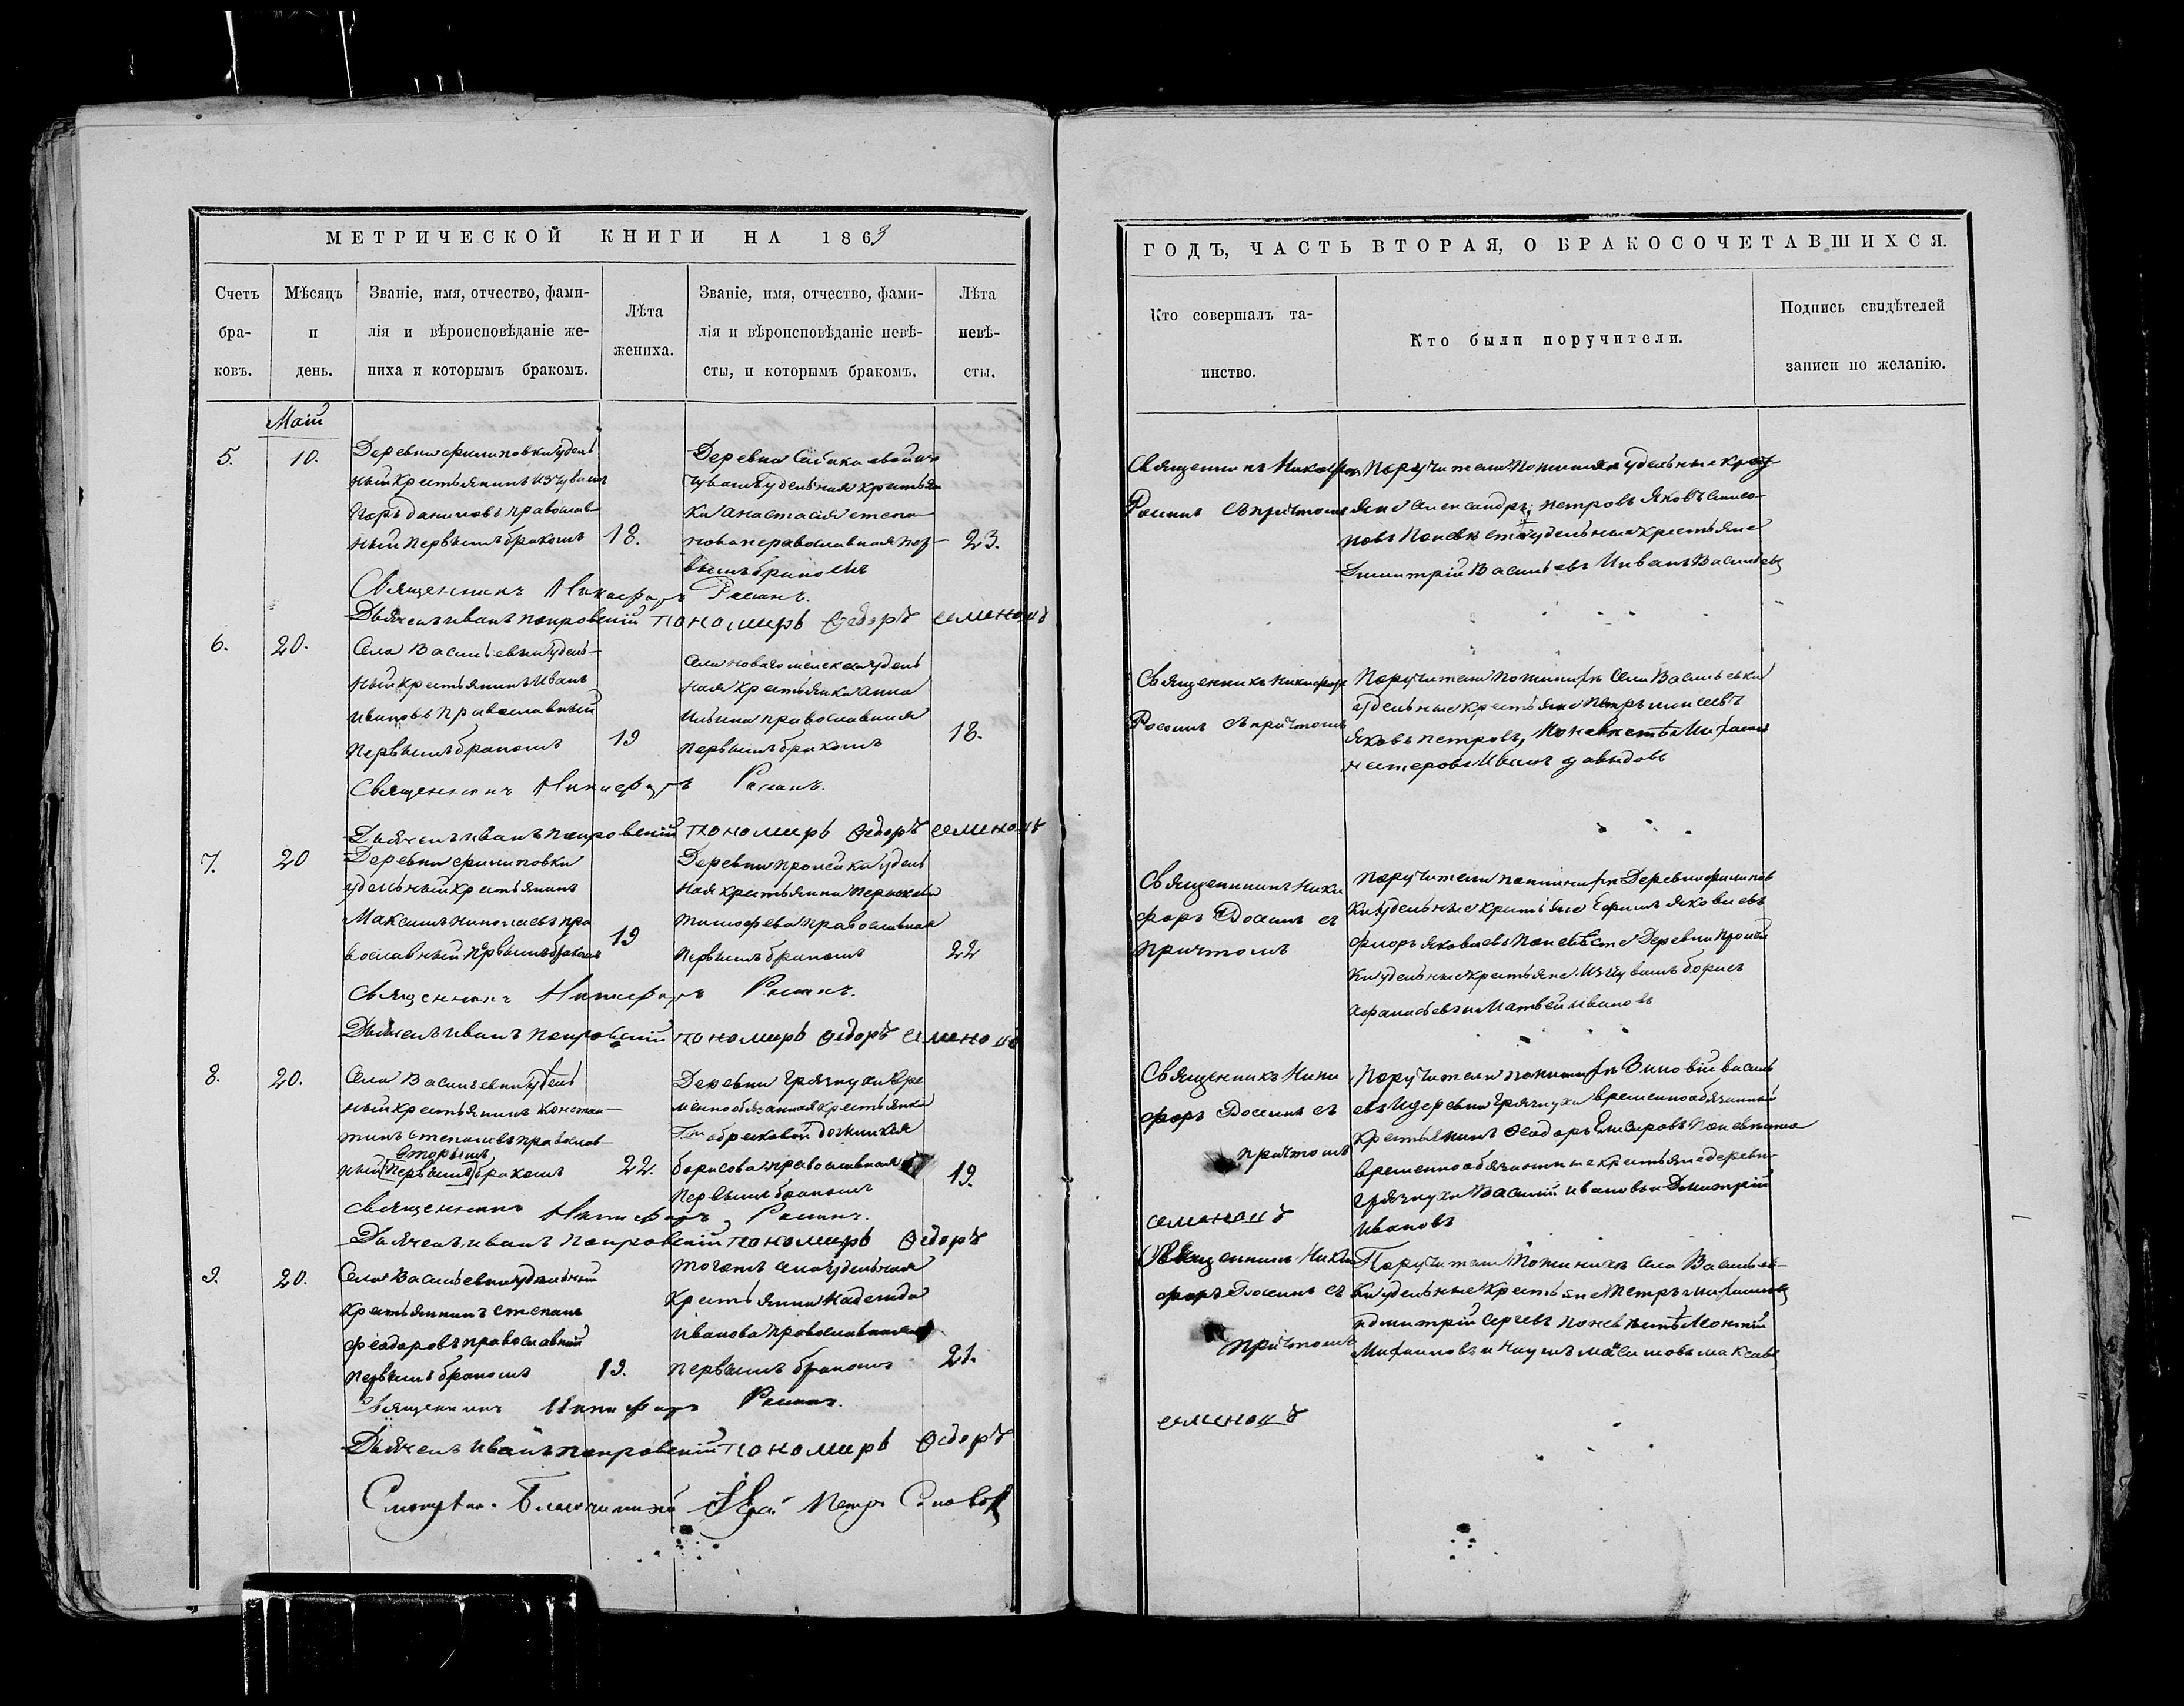 МЕТРИЧЕСКОЙ КНИГИ НА 1863
Счетъ бра-ковъ.
Мѣсяцъ и день.
Званіе, имя, отчество, фами-
лія и вѣроисповѣданіе же-
ниха и которымъ бракомъ.
Лѣта жениха.
Званіе, имя, отчество, фами-
лія и вѣроисповѣданіе невѣ-
сты, и которымъ бракомъ.
Лѣта невѣ-сты.
Май
5.
10.
Деревни Филиповки удель
ный крестьянинъ изъ чувашъ
Егоръ Даниловъ православ-
ный первымъ бракомъ
18.
Деревни
чувашъ удельная крестьян
ка Анастасия Степа
нова православная пер-
вымъ бракомъ
23.
Священникъ Никифоръ Росинъ.
Дьячекъ Иванъ Покровскій пономарь Ѳедоръ Семеновъ
6.
20.
Села Васильевки удель-
ный крестьянинъ Иванъ
Ивановъ православный
первымъ бракомъ
19
Села удель
ная крестьянка Анна
Ильина православная
первымъ бракомъ
18.
Священникъ Никифоръ Росинъ.
Дьячекъ Иванъ Покровскій пономарь Ѳедоръ Семеновъ
7.
20
Деревни Филиповки
удельный крестьянинъ
Максимъ Николаевъ пра
вославный первымъ бракомъ
19
Деревни Пролейки удель
ная крестьянка
Тимофеева православная
первымъ бракомъ
22
Священникъ Никифоръ Росинъ.
Дьячекъ Иванъ Покровскій пономарь Ѳедоръ Семеновъ
8.
20.
Села Васильевки удель
ный крестьянинъ Констан-
тинъ Степановъ православ-
вторымъ
ный [первымъ] бракомъ
22.
Деревни Грязнухи вре
менно обязанная крестьянка
Борисова православная
первымъ бракомъ
19.
Священникъ Никифоръ Росинъ.
Дьячекъ Иванъ Покровскій пономарь Ѳедоръ
9.
20.
Села Васильевки удельный
крестьянинъ Степанъ
Феодоровъ православный
первымъ бракомъ
19.
тогожъ села удельная
крестьянка Надежда
Иванова православная
первымъ бракомъ
21.
Священникъ Никифоръ Росинъ.
Дьячекъ Иванъ Покровскій пономарь Ѳедоръ
Благочинный Петръ
ГОДЪ, ЧАСТЬ ВТОРАЯ, О БРАКОСОЧЕТАВШИХСЯ.
Кто совершалъ та-
инство.
Кто были поручители.
Подпись свидѣтелей
записи по желанію.
Священникъ Никифоръ
Росинъ съ причтомъ
Поручители по женихѣ удельные крест
яне Александръ Петровъ Яковъ
по невѣстѣ удельные крестьяне
Димитрій Васильевъ Иванъ Васильевъ
Священникъ Никифоръ
Росинъ съ причтомъ
Поручители по женихѣ села Васильевки
удельные крестьяне Петръ
Яковъ Петровъ, по невѣстѣ
Нестеровъ Иванъ Давыдовъ
Священникъ Ники
форъ Росинъ съ
причтомъ
Поручители по женихѣ деревни Филипов
ки удельные крестьяне Ефимъ Яковлевъ
Флоръ Яковлевъ по невѣсте деревни Пролей
ки удельные крестьяне изъ чувашъ Борисъ
Афанасьевъ и Матвей Ивановъ
Священникъ Ники
форъ Росинъ съ
причтомъ
Семеновъ
Поручители по женихѣ Зиновій Василь
евъ и деревни Грязнухи временно обязанный
крестьянинъ Ѳеодоръ по невѣсте
временно обязанные крестьяне деревни
Грязнухи Василій Ивановъ и Димитрій
Ивановъ
Священникъ Ники
форъ Росинъ съ
причтомъ
Семеновъ
Поручители по женихѣ села Васильев-
ки удельные крестьяне Петръ
и Дмитрій Сергеевъ по невѣстѣ Леонтій
Михаиловъ и Наумъ